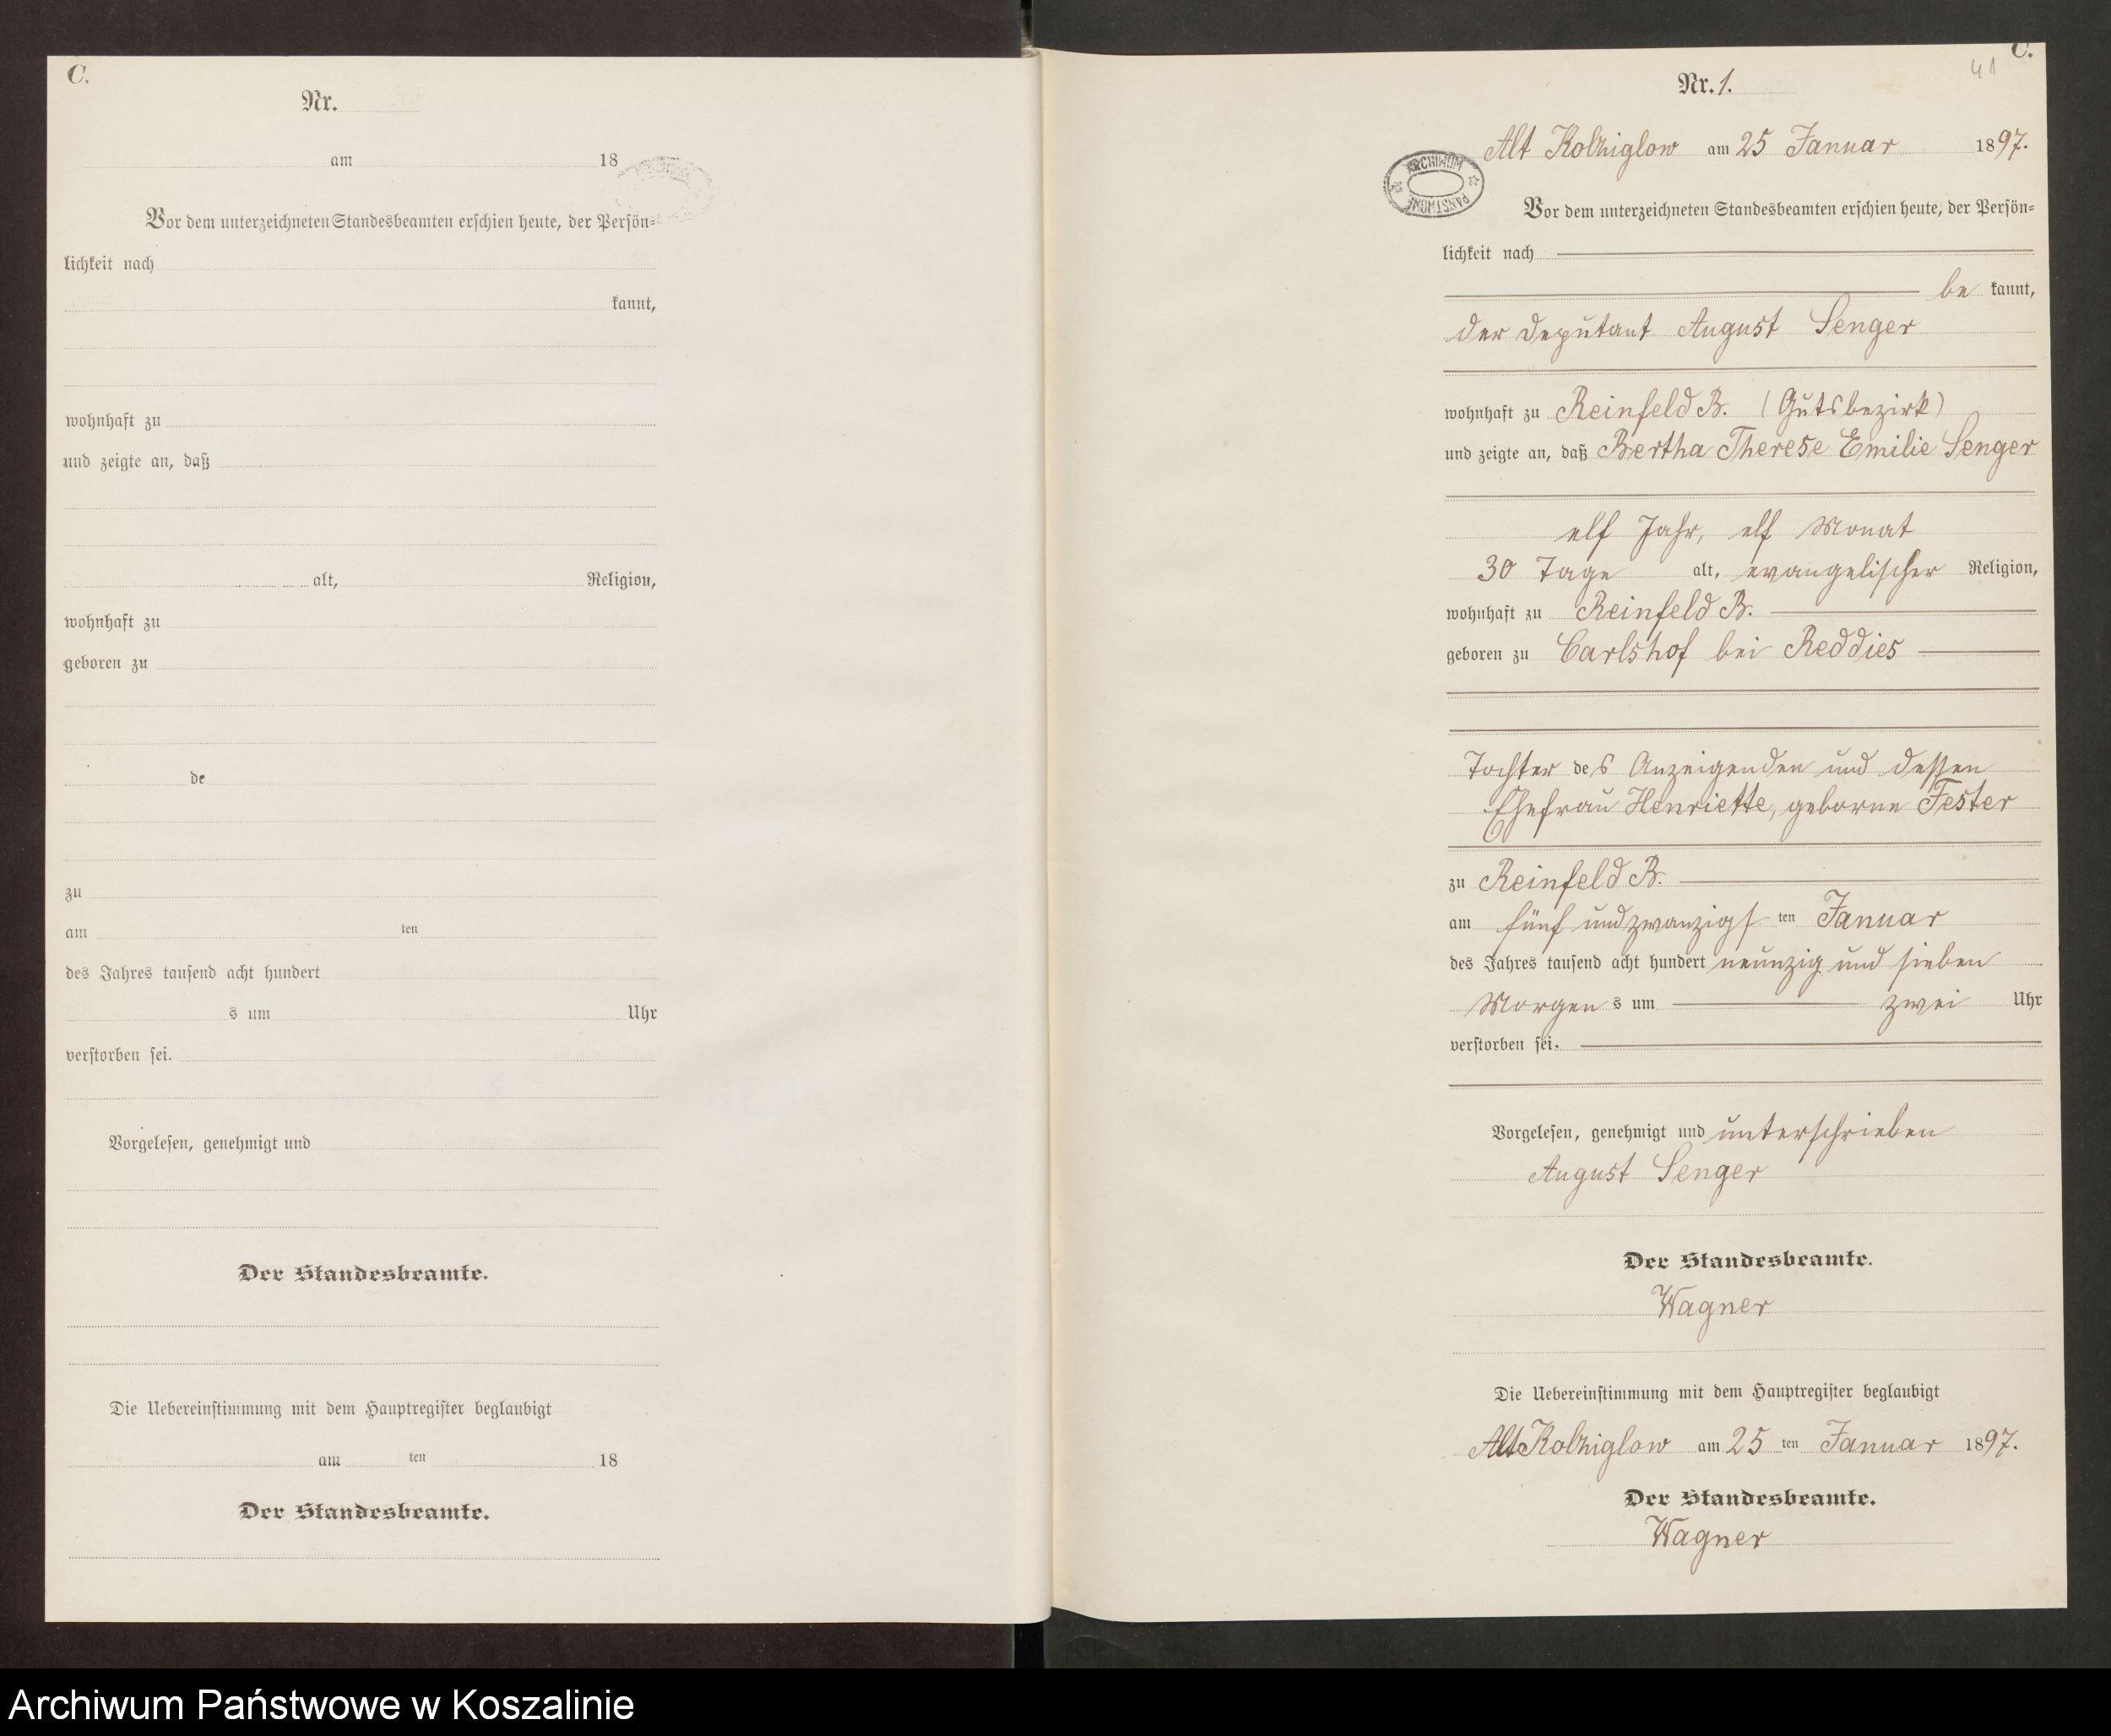 C.
Nr.
am 18
Vor dem unterzeichneten Standesbeamten erschien heute, der Persön-
lichkeit nach
kannt,
wohnhaft zu
und zeigte an, daß
alt, Religion,
wohnhaft zu
geboren zu
de
zu
am ten
des Jahres tausend acht hundert
s um Uhr
verstorben sei.
Vorgelesen, genehmigt und
Der Standesbeamte.
Die Uebereinstimmung mit dem Hauptregister beglaubigt
am ten 18
Der Standesbeamte.
C.
41
Nr. 1.
Alt Kolziglow am 25 Januar 1897.
ARCHIWUM PAŃSTWOWE
Vor dem unterzeichneten Standesbeamten erschien heute, der Persön-
lichkeit nach
be kannt,
der Deputant August Senger
wohnhaft zu Reinfeld B. (Gutsbezirk)
und zeigte an, daß Bertha Therese Emilie Senger
elf Jahr, elf Monat
30 Tage alt, evangelischer Religion,
wohnhaft zu Reinfeld B.
geboren zu Carlshof bei Reddies
Tochter des Anzeigenden und dessen
Ehefrau Henriette, geborne Fester
zu Reinfeld B.
am fünf und zwanzigs ten Januar
des Jahres tausend acht hundert neunzig und sieben
Morgens um zwei Uhr
verstorben sei.
Vorgelesen, genehmigt und unterschrieben
August Senger
Der Standesbeamte.
Wagner
Die Uebereinstimmung mit dem Hauptregister beglaubigt
Alt Kolziglow am 25 ten Januar 1897.
Der Standesbeamte.
Wagner
Archiwum Państwowe w Koszalinie